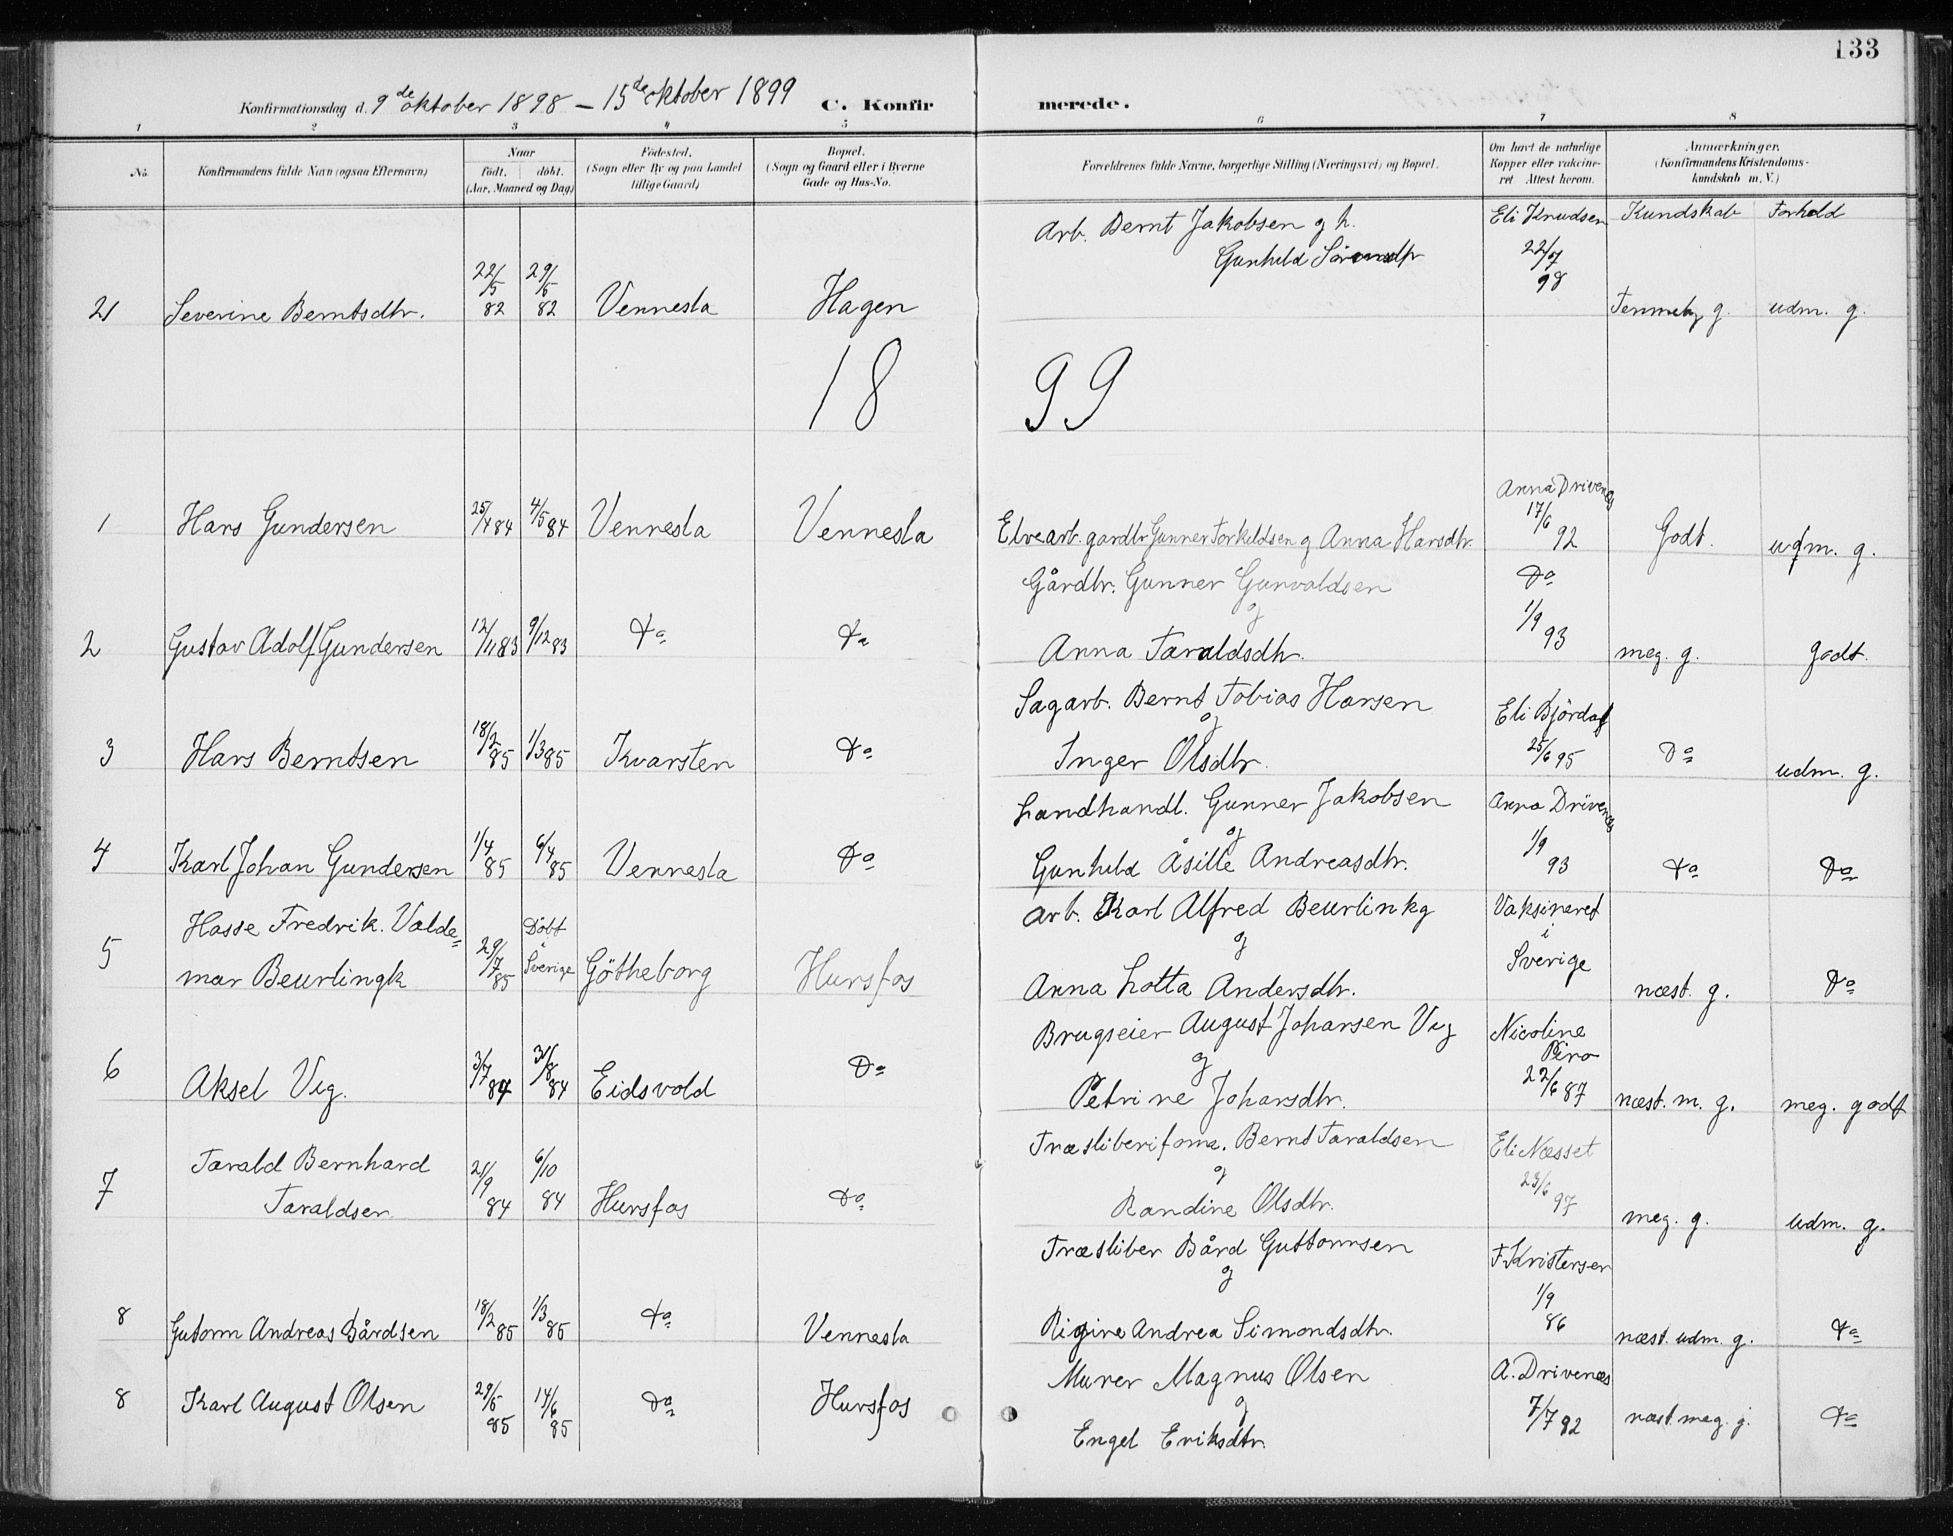 133
Konfirmationsdag d. 9de oktober 1898 – 15de oktober 1899 C. Konfirmerede.
1 2 3 4 5 6 7 8
No. Konfirmandens fulde Navn (ogsaa Efternavn) Naar født. døbt. (Aar, Maaned og Dag) Fødested. (Sogn eller By og paa Landet tillige Gaard) Bopæl. (Sogn og Gaard eller i Byerne Gade og Hus-No. Forældrenes fulde Navne, borgerlige Stilling (Næringsvei) og Bopæl. Om havt de naturlige Kopper eller vakcineret Attest herom. Anmærkninger. (Konfirmandens Kristendomskundskab m. V.)
Kundskab Forhold
21 Severine Berntsdtr. 22/5 82 29/5 82 Vennesla Hagen Arb. Bernt Jakobsen og h. Gunhild Eli Knudsen 22/7 98 g. udm. g.
1899
1 Hans Gundersen 25/4 84 4/5 84 Vennesla Vennesla Elvearb. gardbr Gunner Torkildsen og Anna Hansdtr. Anna Drivenes 17/6 92 Godt. udm. g.
2 Gustav Adolf Gundersen 12/11 83 9/12 83 Do Do Gårdbr. Gunner Gunvaldsen og Anna Taraldsdtr. Do 1/9 93 meg. g. godt.
3 Hans Berntsen 18/2 85 1/3 85 Kvarsten Do Sagarb. Bernt Tobias Hansen og Inger Olsdtr. Eli Björdal 25/6 95 Do udm. g.
4 Karl Johan Gundersen 1/4 85 6/4 85 Vennesla Do Landhandl. Gunner Jakobsen og Gunhild Åsille Andreasdtr. Anna Drivenes 1/9 93 Do Do
5 Hasse Fredrik Valdemar Beurlingk 29/7 85 Döbt i Sverige Götheborg Hunsfos Arb. Karl Alfred Beurlinkg og Anna Lotta Andersdtr. Vaksineret i Sverige næst. g. Do
6 Aksel Vig. 3/7 84 31/8 84 Eidsvold Do Brugseier August Johansen Vig og Petrine Johansdtr. Nicoline 22/6 87 næst. m. g. meg. godt
7 Tarald Bernhard Taraldsen 21/9 84 6/10 84 Hunsfos Do Træsliberiform. Bernt Taraldsen og Randine Olsdtr. Eli Næsset 23/6 97 meg. g. udm. g.
8 Gutorm Andreas Bårdsen 18/2 85 1/3 85 Do Vennesla Træsliber Bård Guttormsen og Andrea Simondsdtr. F. Kristensen 1/9 86 næst. udm. g. Do
8 Karl August Olsen 29/5 85 14/6 85 Do Hunsfos Murer Magnus Olsen og Engel Eriksdtr. A. Drivenæs 7/7 92 næst. meg. g. Do